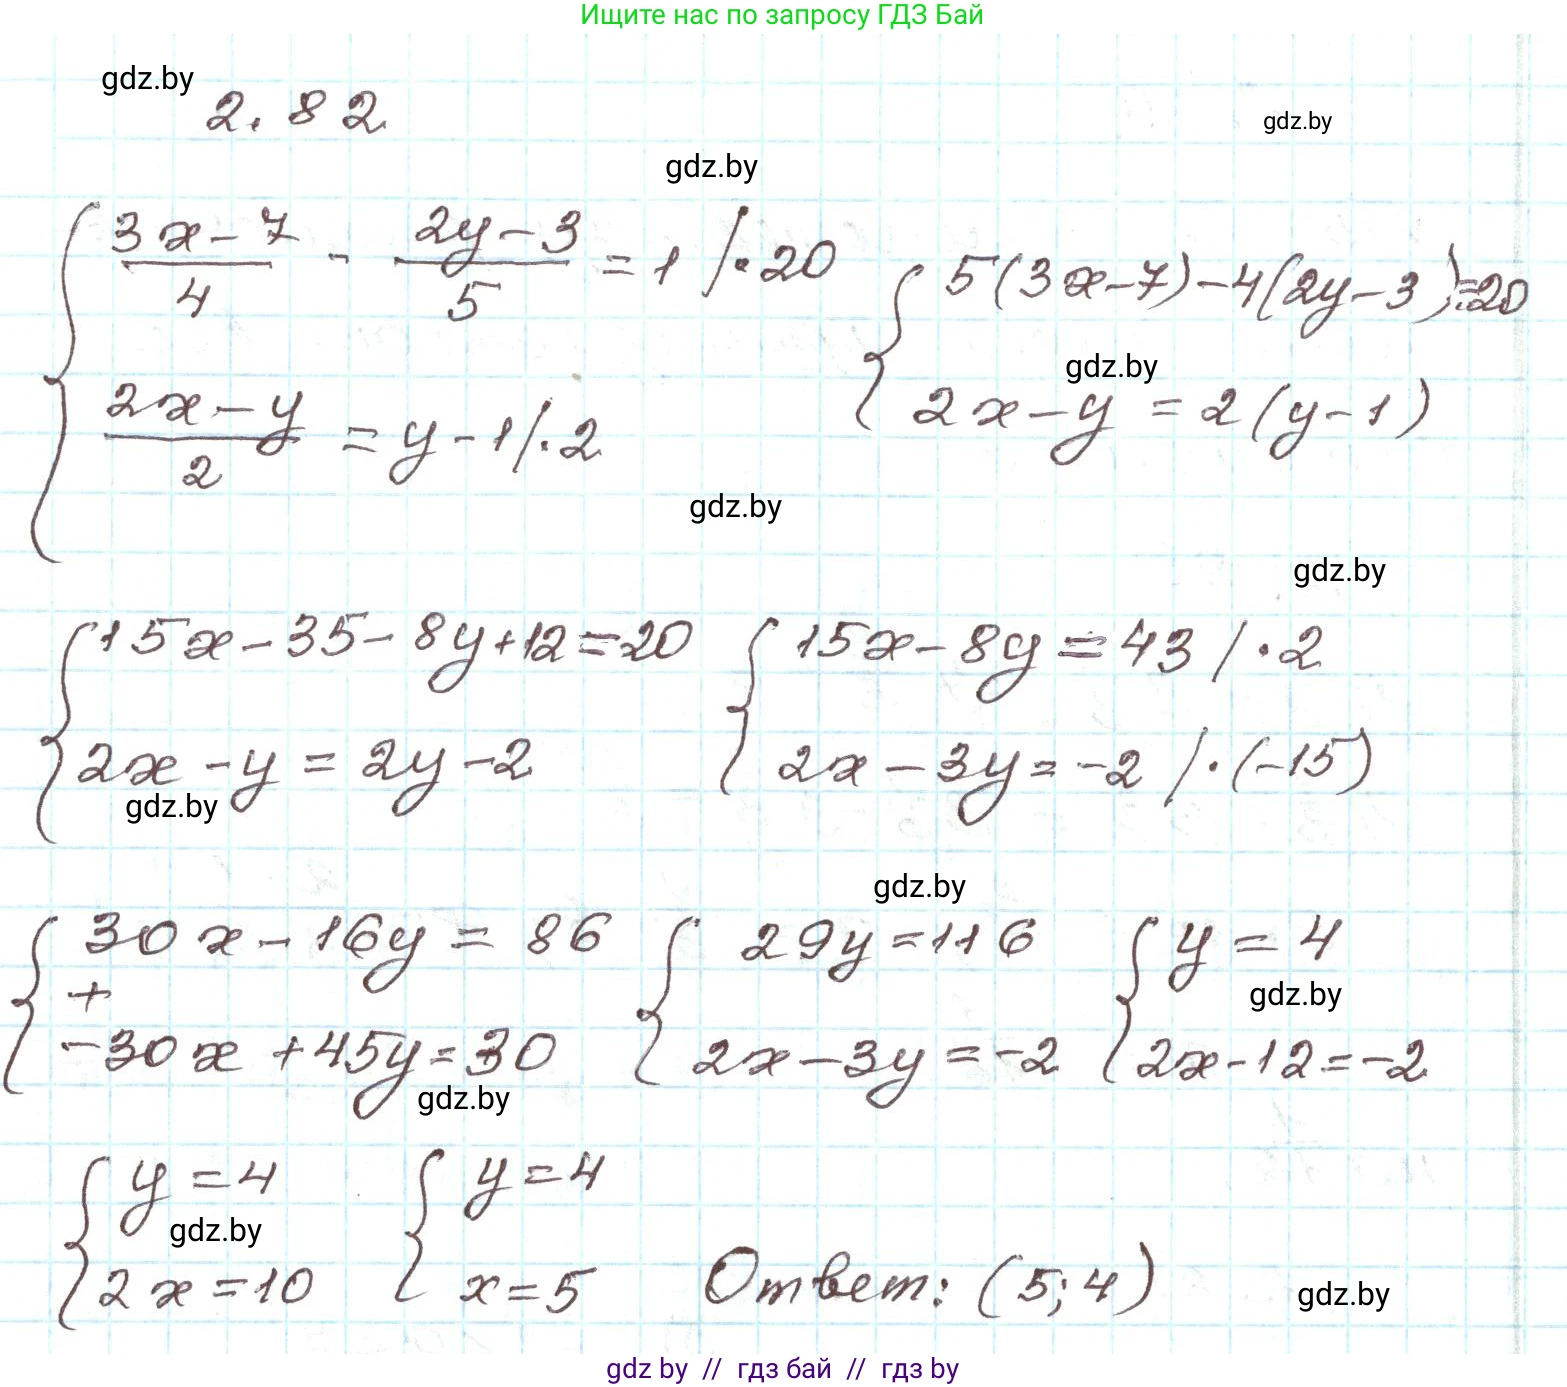 Ищите нас по запросу ГДЗ Бай
gdz.by
2.82
gdz.by
gdz.by
{ (3x-7)/4 - (2y-3)/5 = 1 |·20
(2x-y)/2 = y-1 |·2
{ 5(3x-7)-4(2y-3)=20
gdz.by
2x-y=2(y-1)
gdz.by
gdz.by
{ 15x-35-8y+12=20
2x-y=2y-2
gdz.by
{ 15x-8y=43 |·2
2x-3y=-2 |·(-15)
gdz.by
{ 30x-16y=86
+
-30x+45y=30
gdz.by
{ 29y=116
2x-3y=-2
{ y=4
gdz.by
2x-12=-2
{ y=4
gdz.by
2x=10
{ y=4
x=5
Ответ: (5;4)
gdz.by
gdz by // гдз бай // гдз by